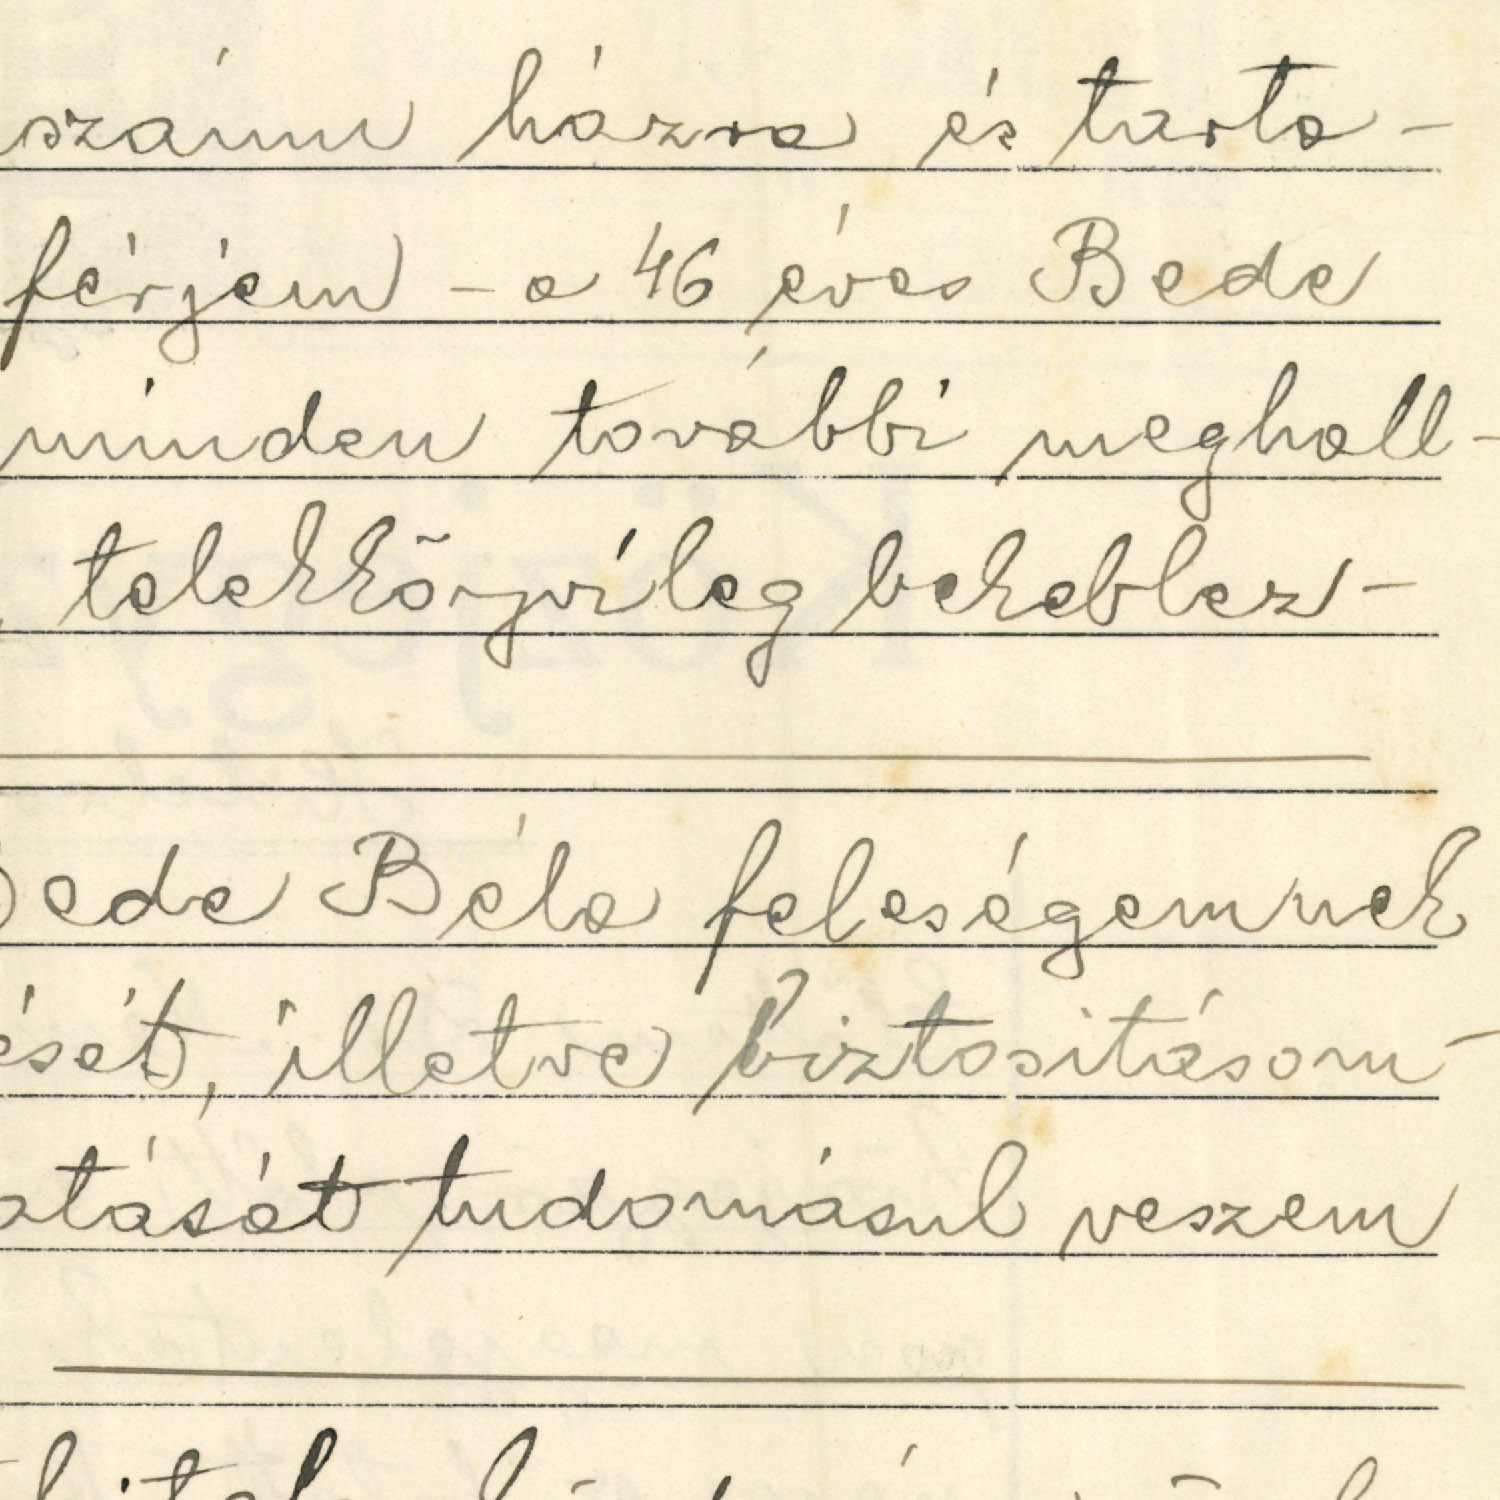 számu házra és tarto-
férjem - a 46 éves Bede
minden további meghall-
telekkönyvileg bekeblez-
Bede Béla feleségemnek
ését, illetve biztositásom-
atását tudomásul veszem